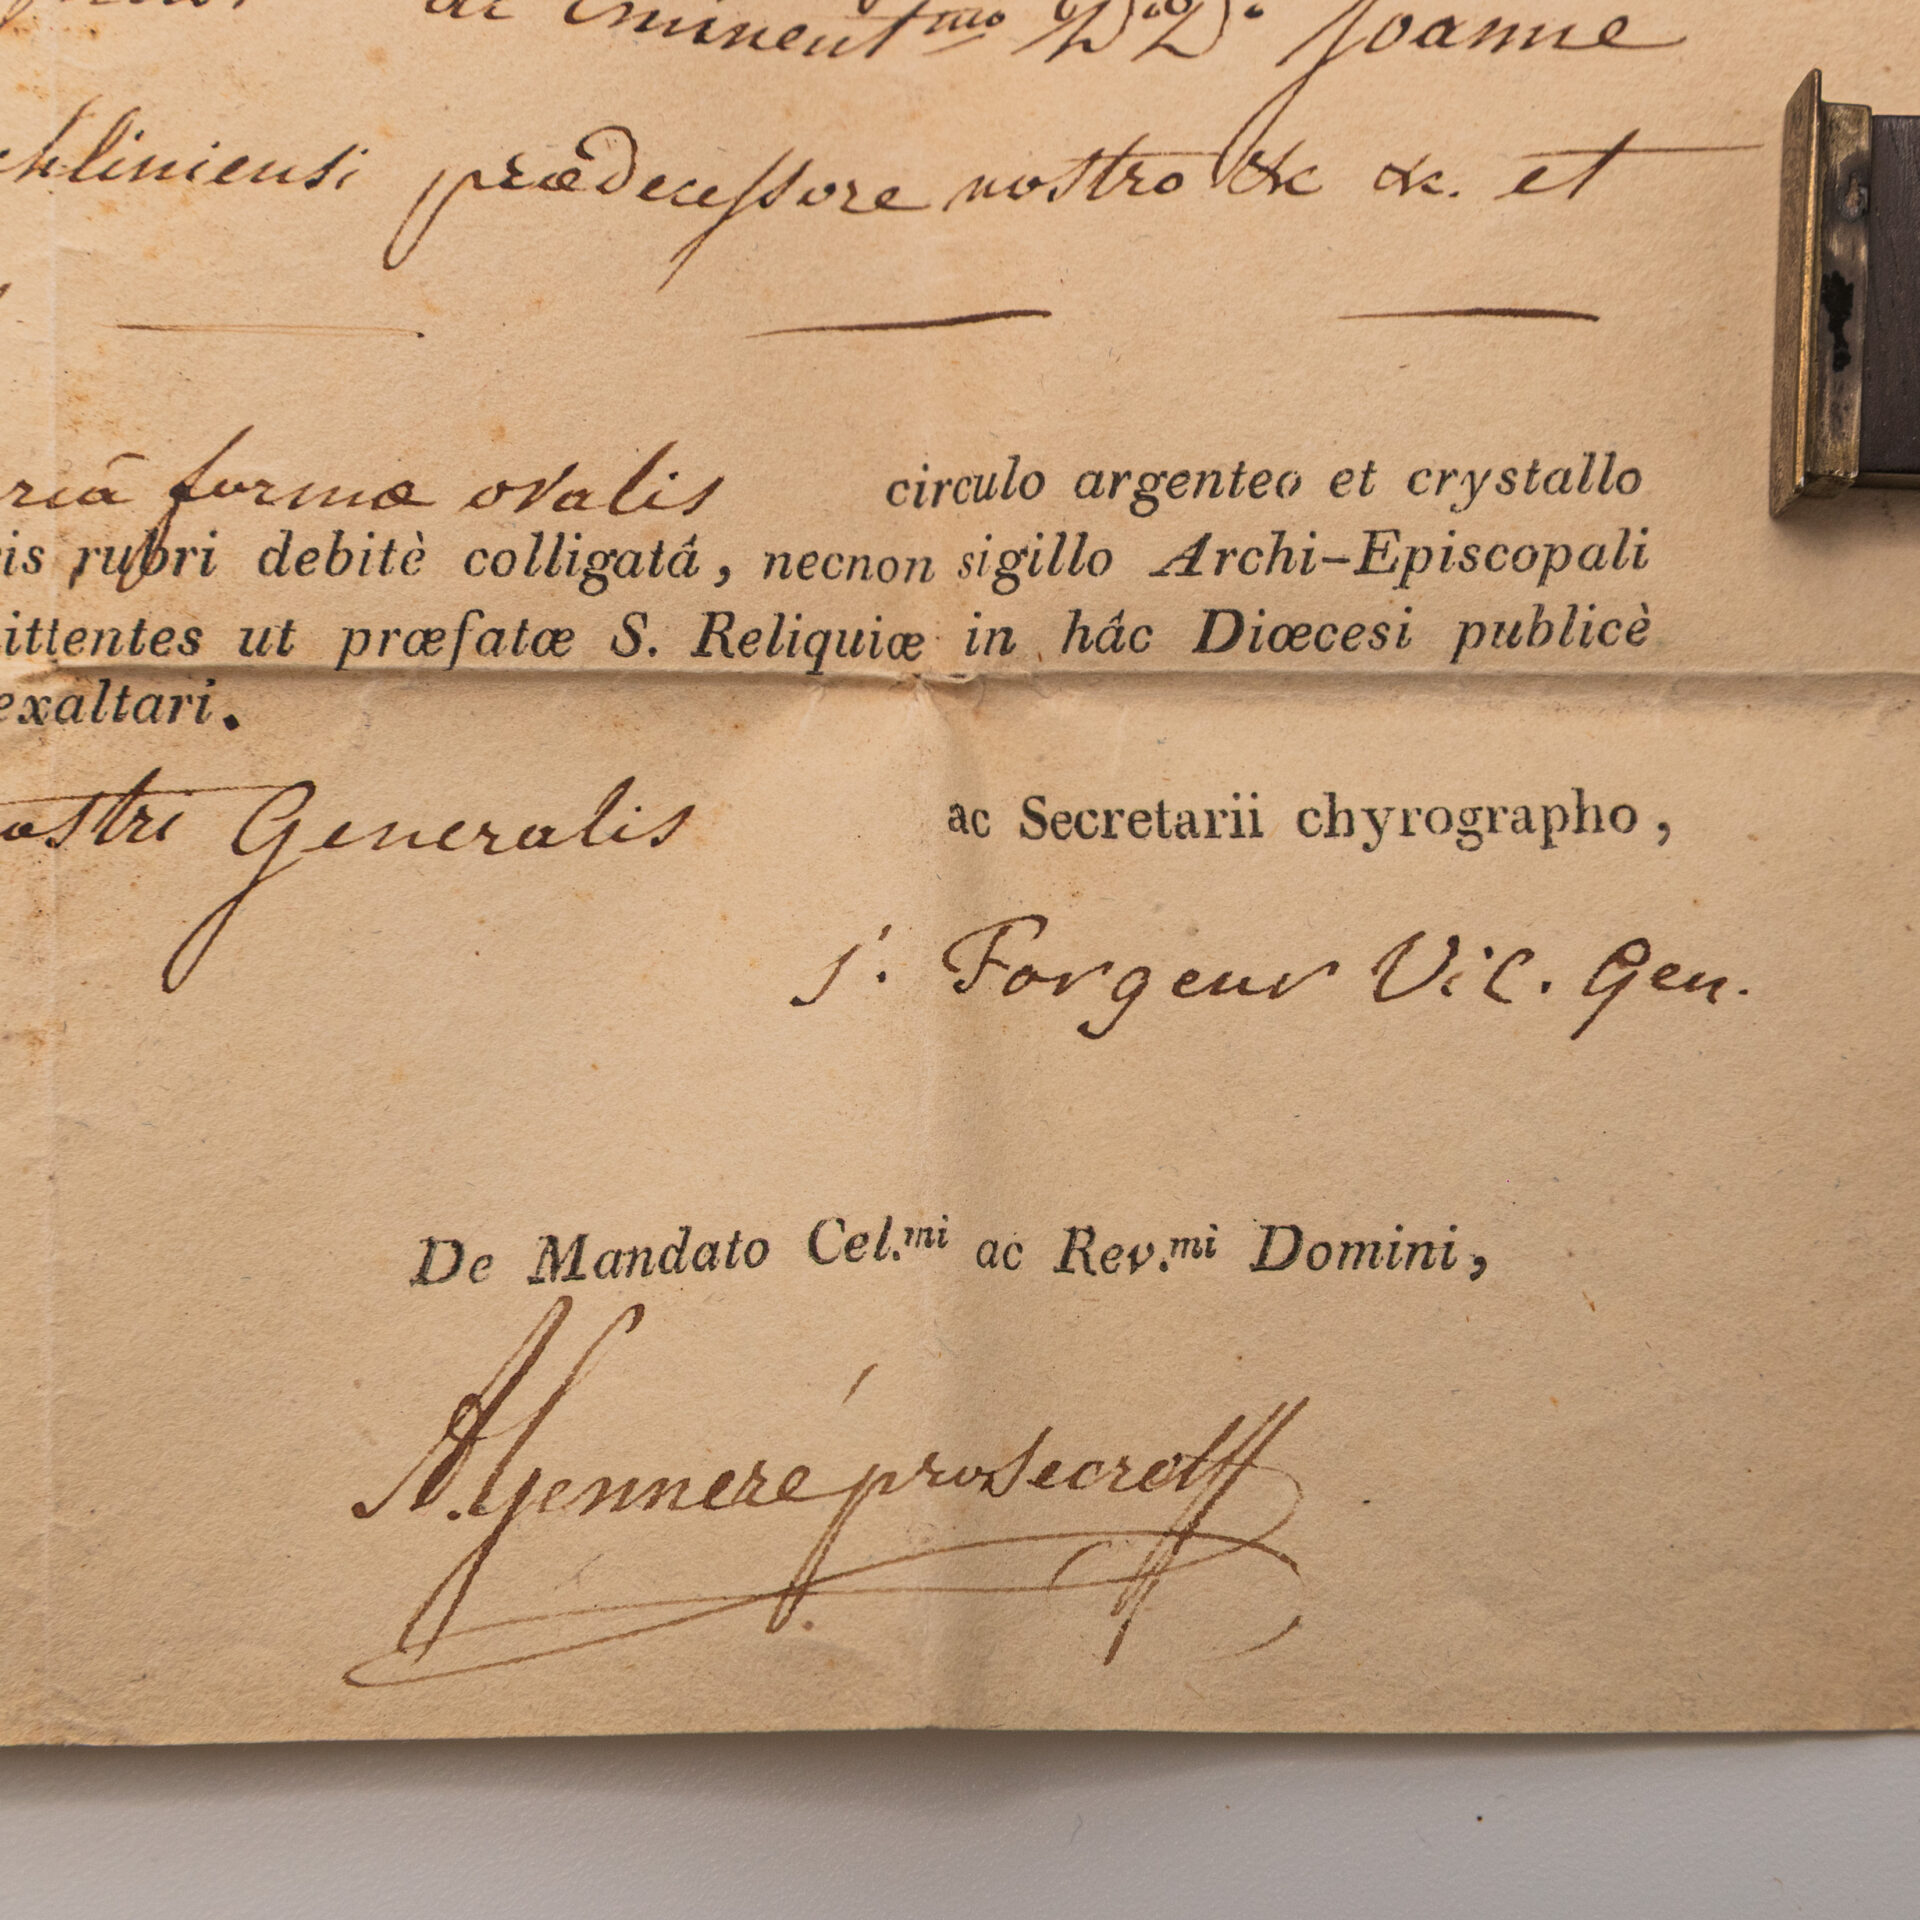 ac Eminent^mo D.D. Joanne
chliniensi prædecessore nostro &c &c. et
riâ formæ ovalis circulo argenteo et crystallo
is rubri debitè colligatâ, necnon sigillo Archi-Episcopali
ittentes ut præſatæ S. Reliquiæ in hâc Diœcesi publicè
exaltari.
ostri Generalis ac Secretarii chyrographo,
J. Forgeur Vic. Gen.
De Mandato Cel.mi ac Rev.mi Domini,
A. Genneré prosecret